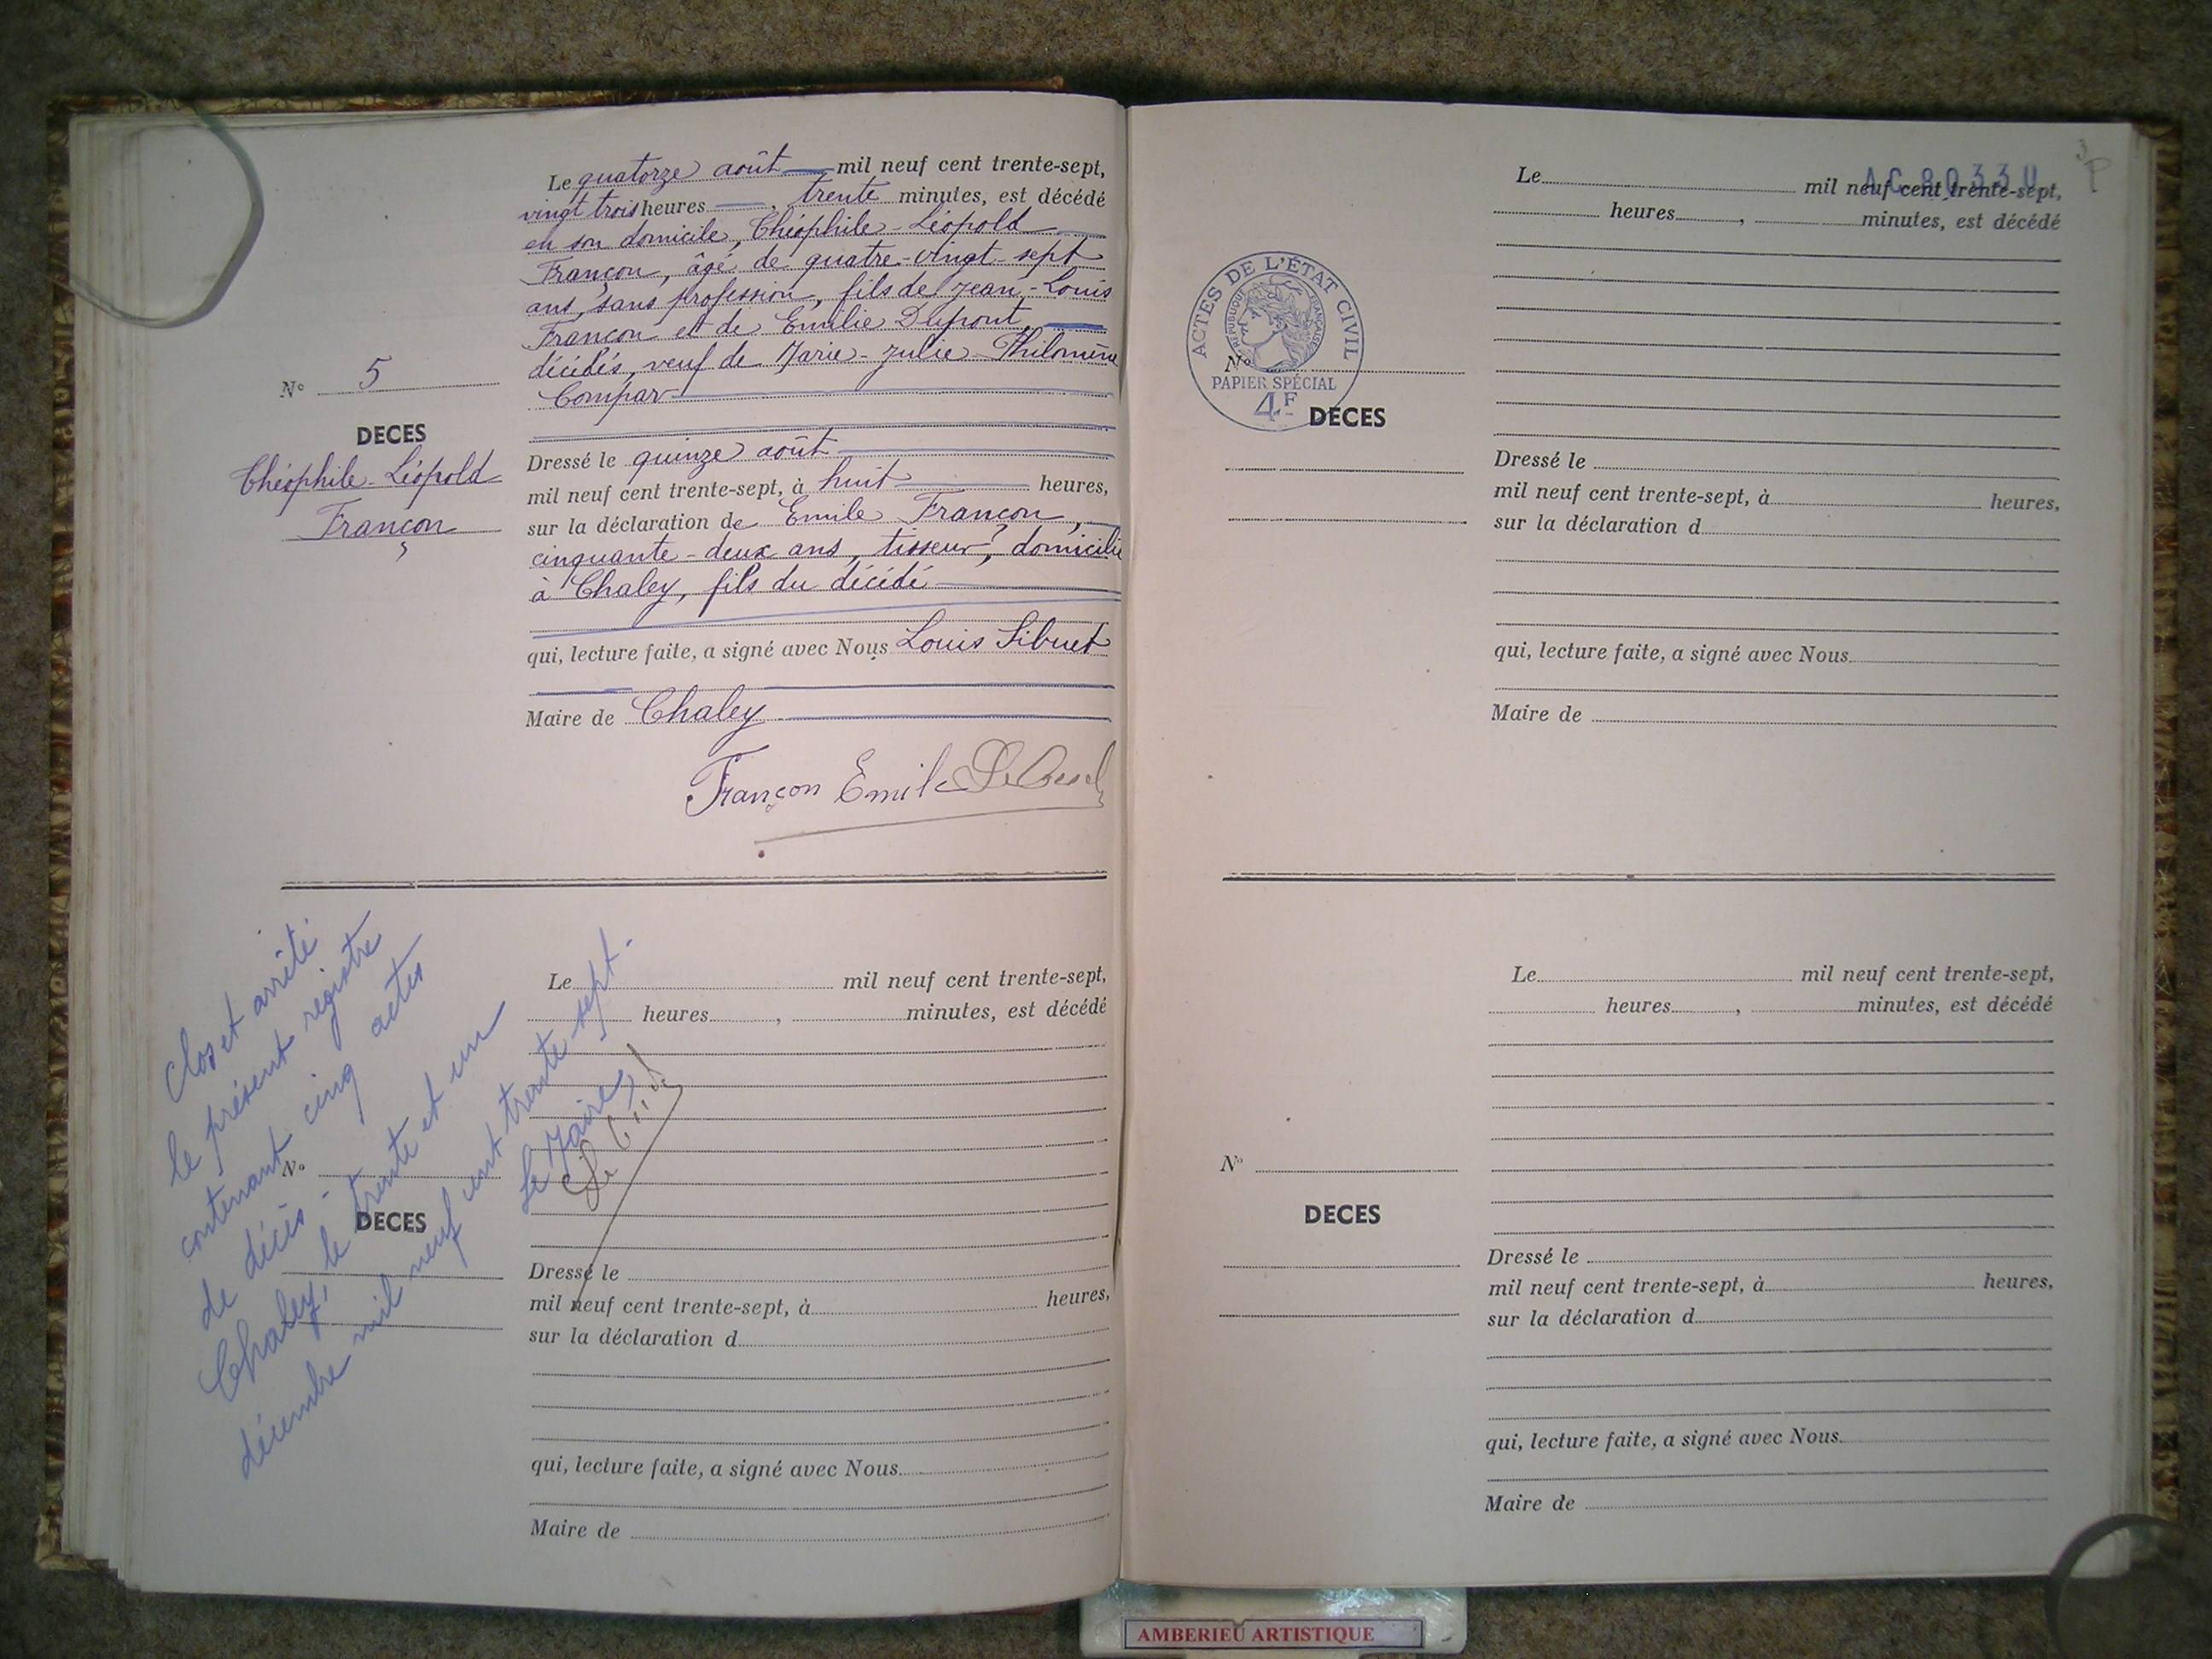 Le quatorze août mil neuf cent trente-sept,
vingt trois heures , trente minutes, est décédé
en son domicile, Théophile-Léopold
Françon, âgé de quatre-vingt-sept
ans, sans profession, fils de Jean-Louis
Françon et de Emilie Dupont,
décédés, veuf de Marie-Julie-Philomène
Compar
N° 5
DECES
Théophile-Léopold
Françon
Dressé le quinze août
mil neuf cent trente-sept, à huit heures,
sur la déclaration de Emile Françon,
cinquante-deux ans, tisseur, domicilié
à Chaley, fils du décédé
qui, lecture faite, a signé avec Nous Louis Sibuet
Maire de Chaley
Françon Emile
Clos et arrêté
le présent registre
contenant cinq actes
de décès -
Chaley, le trente et un
décembre mil neuf cent trente sept -
Le Maire,
Le mil neuf cent trente-sept,
heures , minutes, est décédé
N°
DECES
Dressé le
mil neuf cent trente-sept, à heures,
sur la déclaration d
qui, lecture faite, a signé avec Nous
Maire de
AC 80330
Le mil neuf cent trente-sept,
heures , minutes, est décédé
ACTES DE L'ÉTAT CIVIL
RÉPUBLIQUE FRANÇAISE
PAPIER SPÉCIAL
4F
N°
DECES
Dressé le
mil neuf cent trente-sept, à heures,
sur la déclaration d
qui, lecture faite, a signé avec Nous
Maire de
Le mil neuf cent trente-sept,
heures , minutes, est décédé
N°
DECES
Dressé le
mil neuf cent trente-sept, à heures,
sur la déclaration d
qui, lecture faite, a signé avec Nous
Maire de
AMBERIEU ARTISTIQUE